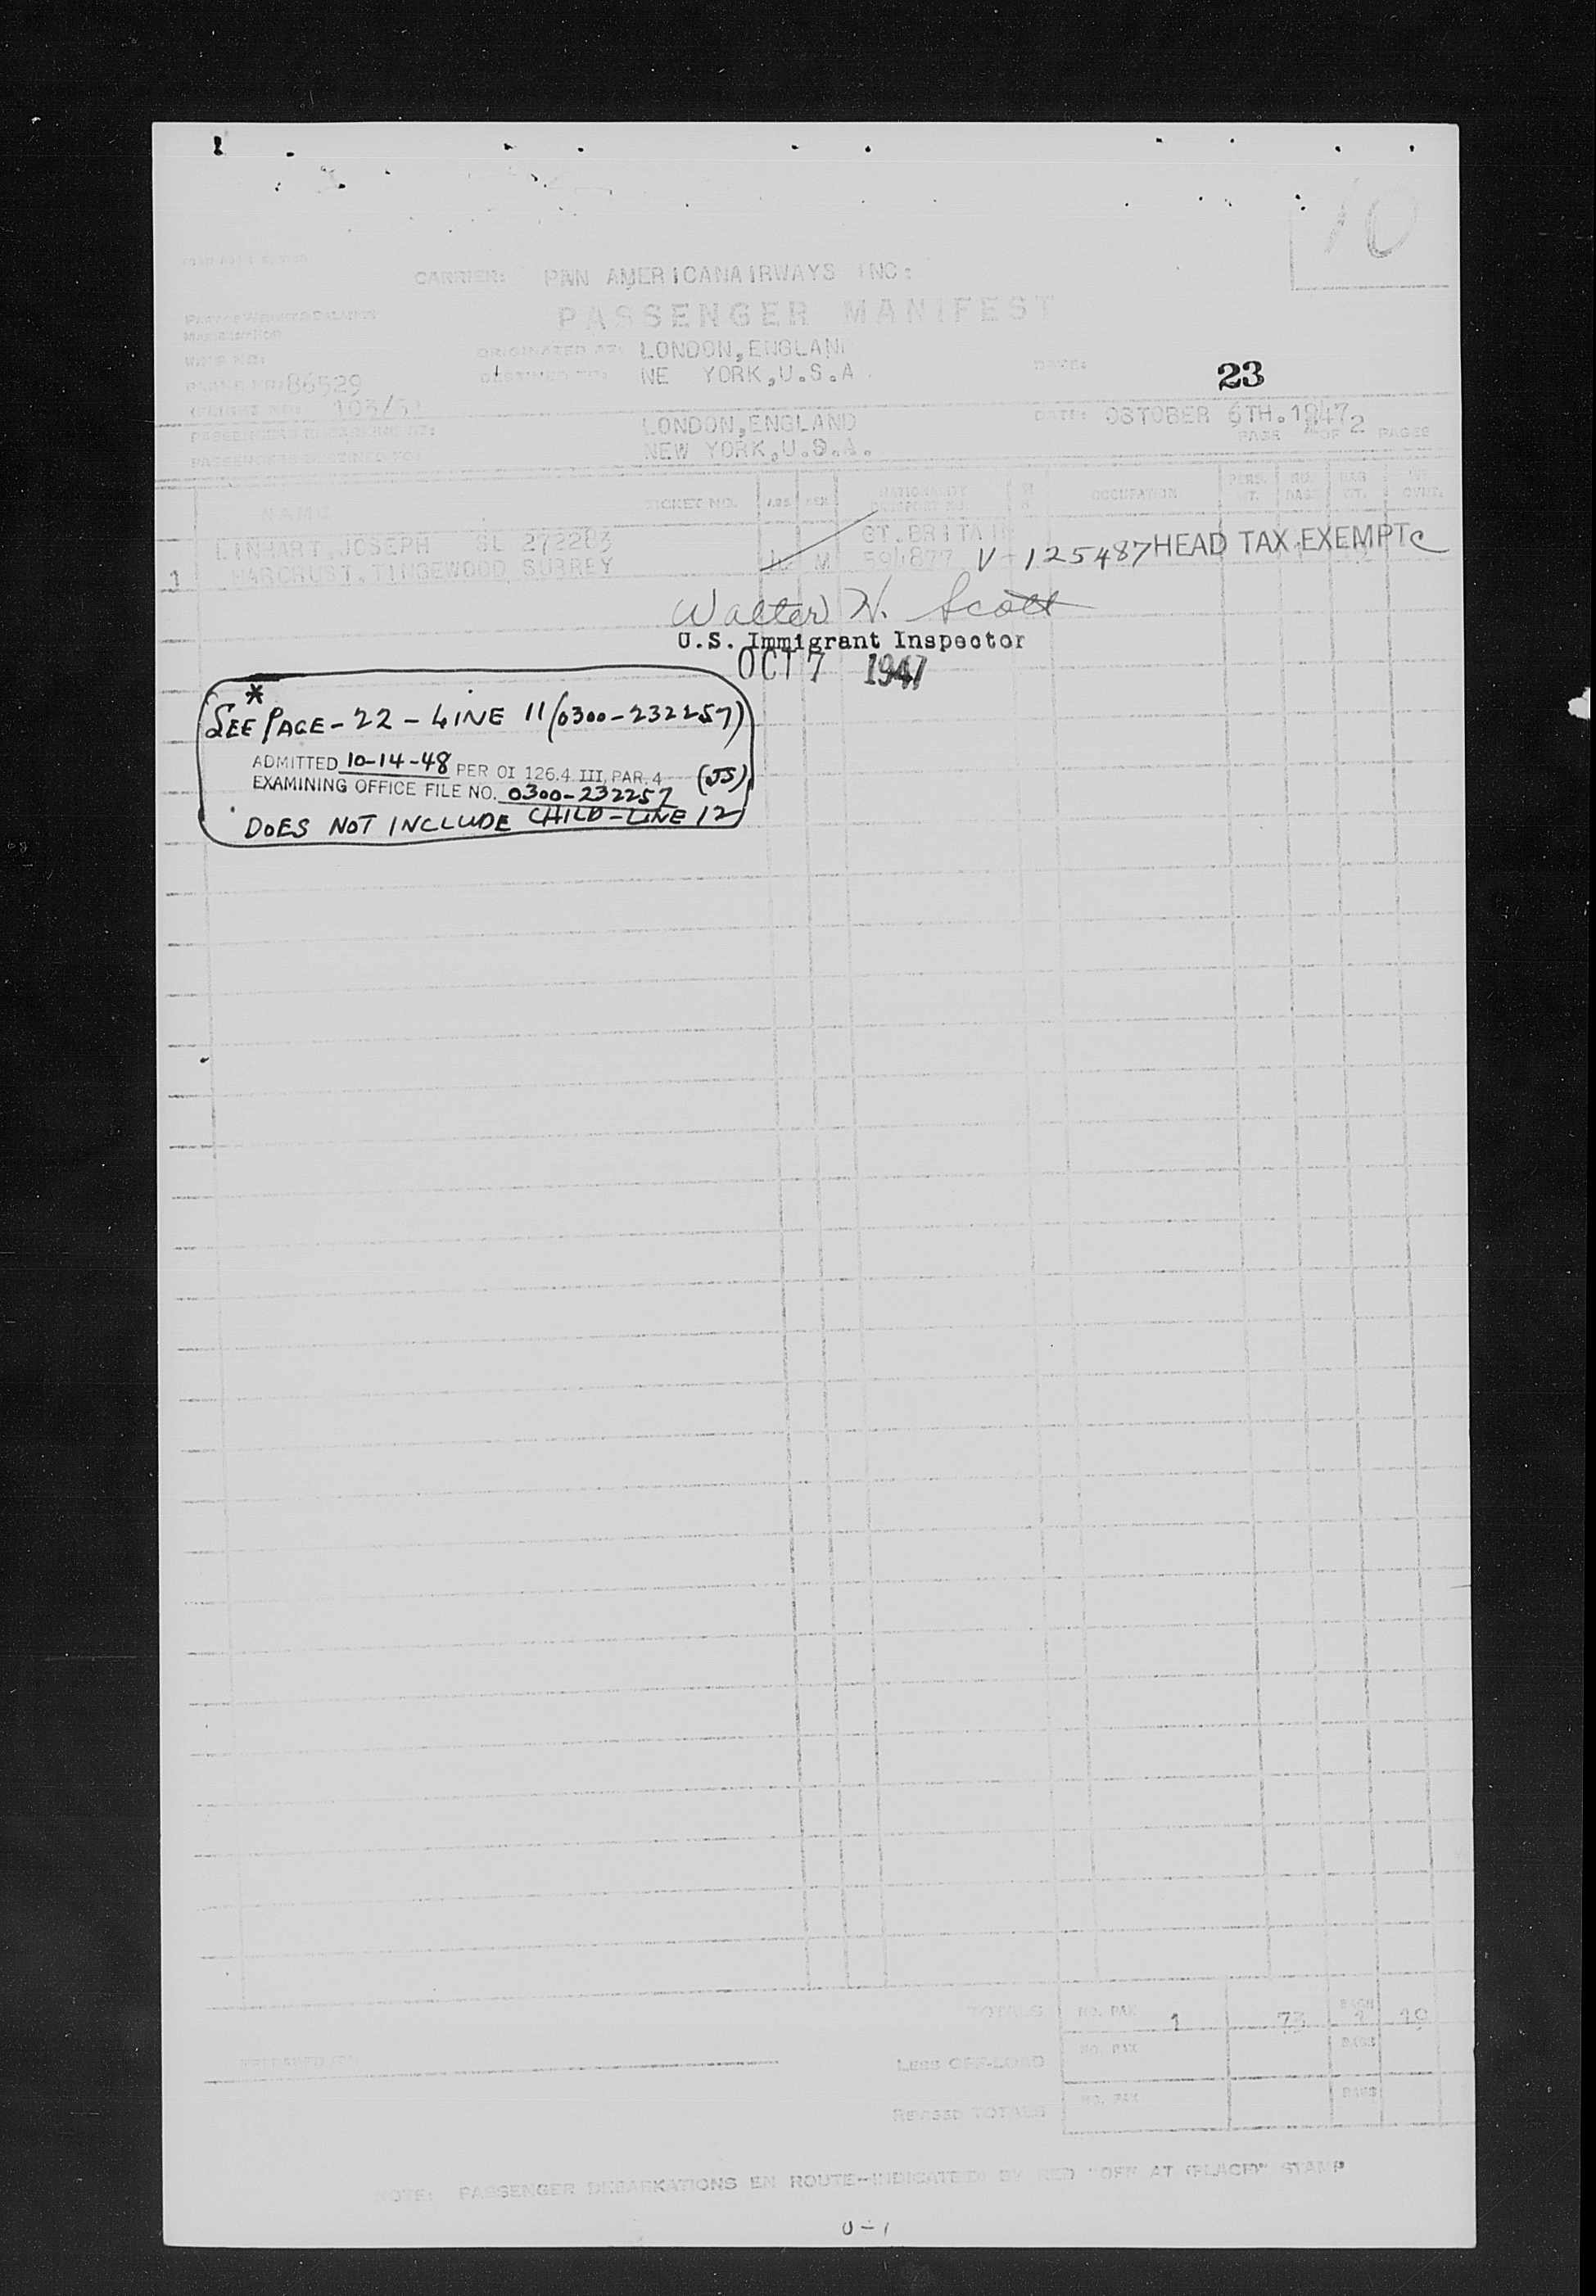 10
CARRIER: PAN AMERICANAIRWAYS INC:
PASSENGER MANIFEST
ORIGINATED AT: LONDON,ENGLAN
DESTINED TO: NE YORK,U.S.A.
DATE: 23
86529
FLIGHT NO: 103/51
DATE: OSTOBER 6TH.1947
PASSENGERS EMBARKING AT: LONDON,ENGLAND
PAGE 2 OF 2 PAGES
NEW YORK,U.S.A.
NAME TICKET NO. AGE SEX NATIONALITY OCCUPATION PERS. WT. NO. BAGS BAG WT.
LINHART,JOSEPH SL 272283 GT.BRITAIN
1 TINGEWOOD SURREY M 594877 V-125487 HEAD TAX EXEMPT C
Walter W. Scott
U.S. Immigrant Inspector
OCT 7 1947
*
SEE PAGE-22-LINE 11(0300-232257)
ADMITTED 10-14-48 PER OI 126.4 III, PAR. 4 (JS)
EXAMINING OFFICE FILE NO. 0300-232257
DOES NOT INCLUDE CHILD-LINE 12
TOTALS NO. PAX 1 73 BAGS 1 19
LESS OFF-LOAD NO. PAX BAGS
REVISED TOTALS NO. PAX BAGS
NOTE: PASSENGER DEBARKATIONS EN ROUTE-INDICATED BY RED "OFF AT (PLACE)" STAMP
0-1